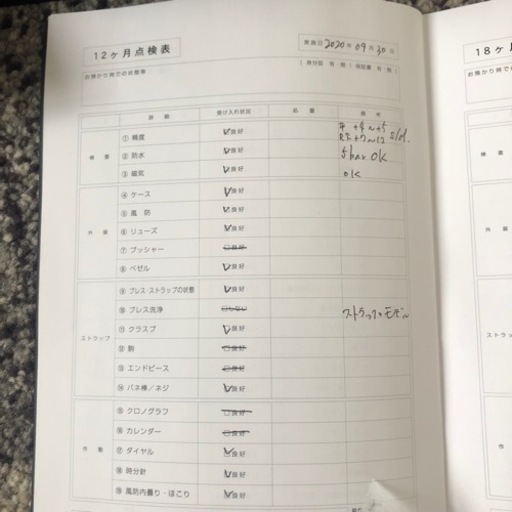 12ヶ月点検表
実施日 2020年 09月 30日
お預かり時での状態等
(身分証 有・無)(保証書 有・無)
診断 受け入れ状況 処置 備考
検査
① 精度 良好
② 防水 良好 5bar OK
③ 磁気 良好 OK
外装
④ ケース 良好
⑤ 風防 良好
⑥ リューズ 良好
⑦ プッシャー 良好
⑧ ベゼル 良好
ストラップ
⑨ ブレス・ストラップの状態 良好
⑩ ブレス洗浄 しない ストラップモデル
⑪ クラスプ 良好
⑫ 駒 良好
⑬ エンドピース 良好
⑭ バネ棒/ネジ 良好
作動
⑮ クロノグラフ 良好
⑯ カレンダー 良好
⑰ ダイヤル 良好
⑱ 時分針 良好
⑲ 風防内曇り・ほこり 良好
18ヶ月
お預かり時の
検査
外装
ストラップ
作